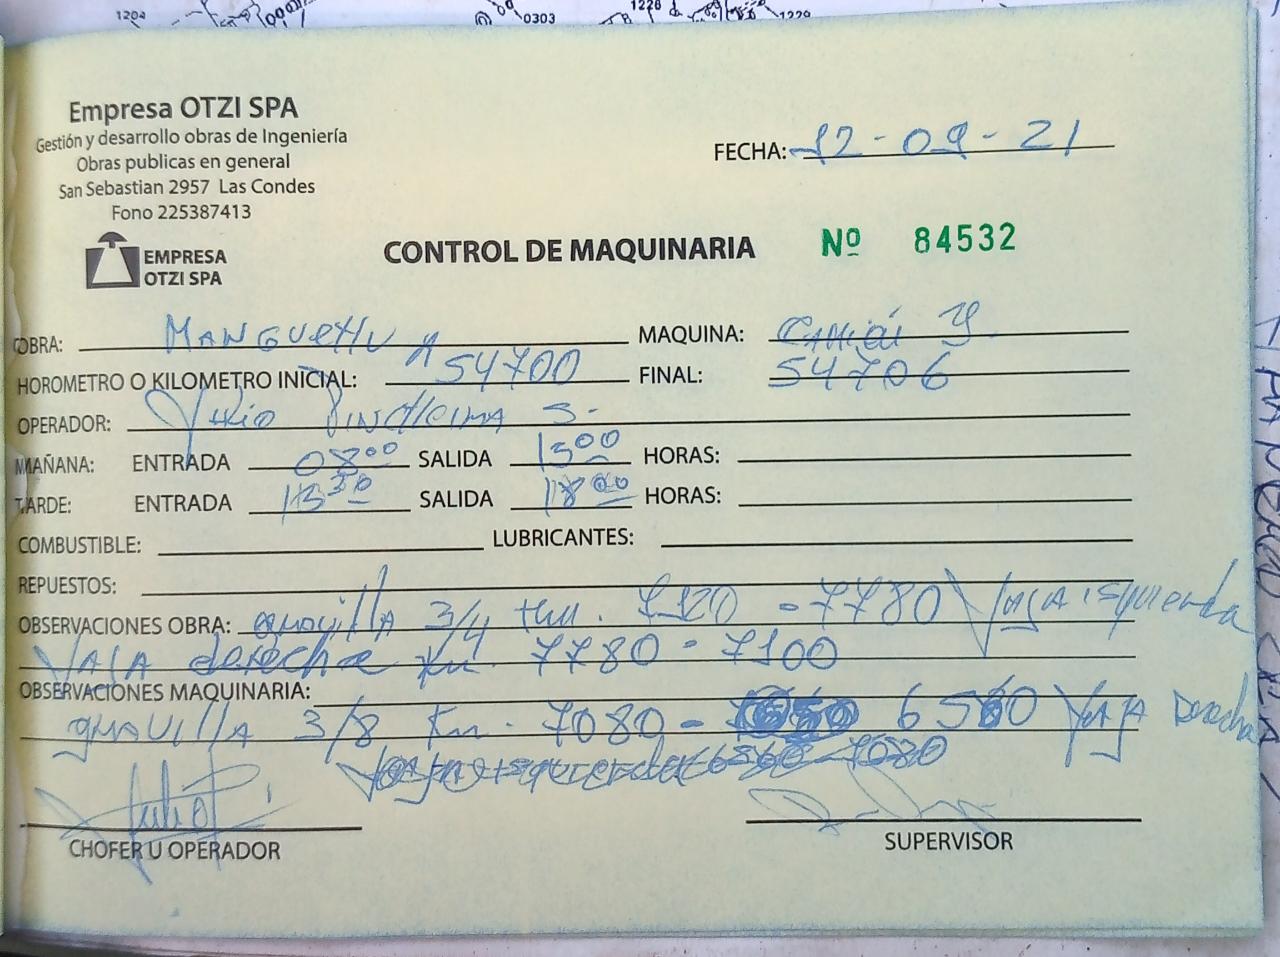 1204
0303
1228
1229
Empresa OTZI SPA
Gestión y desarrollo obras de Ingeniería
Obras publicas en general
San Sebastian 2957 Las Condes
Fono 225387413
EMPRESA
OTZI SPA
FECHA: 12-09-21
CONTROL DE MAQUINARIA Nº 84532
OBRA: MANGUEHUA MAQUINA:
HOROMETRO O KILOMETRO INICIAL: 54700 FINAL: 54706
OPERADOR: S-
MAÑANA: ENTRADA 08:00 SALIDA 13:00 HORAS:
TARDE: ENTRADA 13:30 SALIDA 18:00 HORAS:
COMBUSTIBLE: LUBRICANTES:
REPUESTOS:
OBSERVACIONES OBRA: gravilla 3/4 km. 7120 - 7780 faja isquierda
faja derecha km. 7780 - 7100
OBSERVACIONES MAQUINARIA:
gravilla 3/8 Km. 7080 - 6560 faja Derecha
7080
CHOFER U OPERADOR
SUPERVISOR